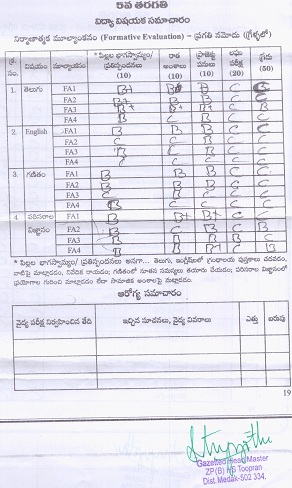 5వ తరగతి
విద్యా విషయక సమాచారం
నిర్మాణాత్మక మూల్యాంకనం (Formative Evaluation) – ప్రగతి నమోదు (గ్రేళ్ళలో)
క్ర. సం. విషయం మూల్యాంకనం * పిల్లల భాగస్వామ్యం/ ప్రతిస్పందనలు (10) రాత అంశాలు (10) ప్రాజెక్టు పనులు (10) లఘు పరీక్ష (20) గ్రేడు (50)
1. తెలుగు FA1 B+ B+ B C
FA2 B+ B B C C
FA3 B C
FA4 C C
2. English FA1 B B B C
FA2 C C C C
FA3 B B C C
FA4 C C C C
3. గణితం FA1 B B B C
FA2 B B B C C
FA3 C C
FA4 B C C
4. పరిసరాల విజ్ఞానం FA1 B B+ B+ C
FA2 B B C C
FA3 B B
FA4 B B C
* పిల్లల భాగస్వామ్యం/ ప్రతిస్పందనలు అనగా... తెలుగు, ఇంగ్లీష్‌లో గ్రంథాలయ పుస్తకాలు చదవడం,
వాటిపై మాట్లాడడం, నివేదిక రాయడం; గణితంలో నూతన సమస్యలు తయారు చేయడం; పరిసరాల విజ్ఞానంలో
ప్రయోగాల గురించి మాట్లాడడం లేదా సామాజిక అంశాలపై మాట్లాడడం.
ఆరోగ్య సమాచారం
వైద్య పరీక్ష నిర్వహించిన తేది ఇచ్చిన సూచనలు, వైద్య వివరాలు ఎత్తు బరువు
19
Gazetted Head Master
ZP(B) HS Toopran
Dist. Medak-502 334.